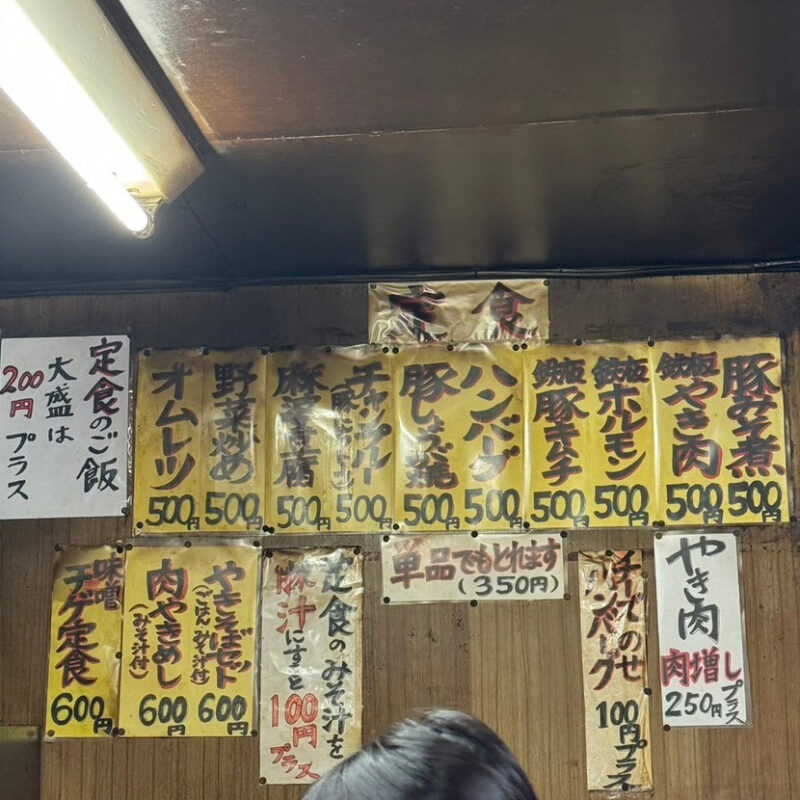 定食
豚みそ煮
500円
鉄板やき肉
500円
鉄板ホルモン
500円
鉄板豚キムチ
500円
ハンバーグ
500円
豚しょうが焼
500円
チャップリー
500円
麻婆豆腐
500円
野菜炒め
500円
オムレツ
500円
定食のご飯
大盛は
200円プラス
やき肉
肉増し
250円プラス
チーズのせ
ハンバーグ
100円プラス
単品でもとれます
(350円)
定食のみそ汁を
豚汁にすると
100円
プラス
やきそばセット
(ごはん、みそ汁付)
600円
肉やきめし
(みそ汁付)
600円
味噌
チゲ定食
600円